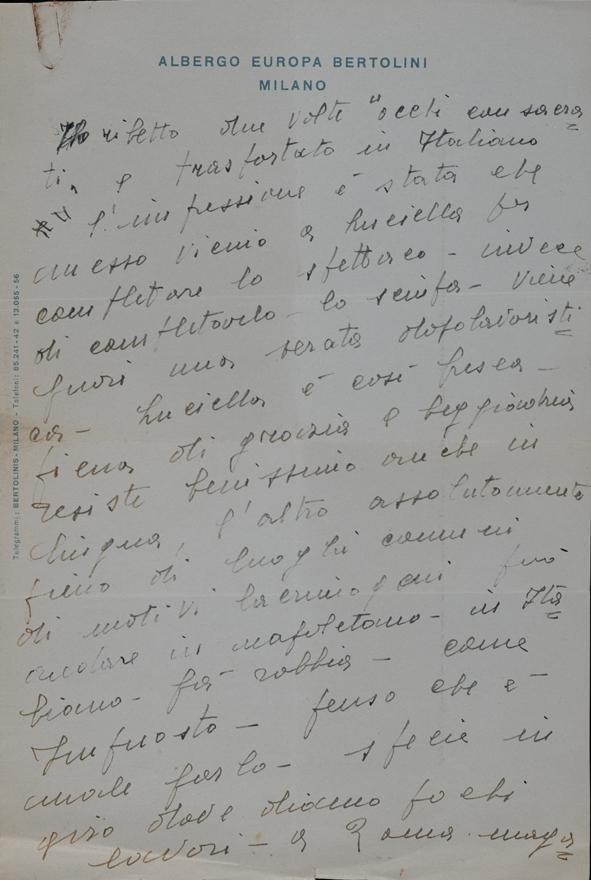 ALBERGO EUROPA BERTOLINI
MILANO
Ho riletto due volte "occhi consacra
ti, e trasportato in Italiano
l'impressione è stata che
messo vicino a Luciella per
completare lo spettaco - invece
di completarlo - lo sciupa - viene
fuori una serata dopolavoristi
ca - Luciella è così fresca -
piena di grazia e leggiadria
resiste benissimo anche in
lingua, l'altro assolutamente
pieno di luoghi comuni
di motivi lacrimogeni può
andare in napoletano - in Ita
liano - fa rabbia - come
Imposto - penso che è -
male farlo - specie in
giro dove diamo pochi
lavori - a Roma maga
Telegrammi: BERTOLINIS - MILANO - Telefoni: 85.241-42 e 13.055-56